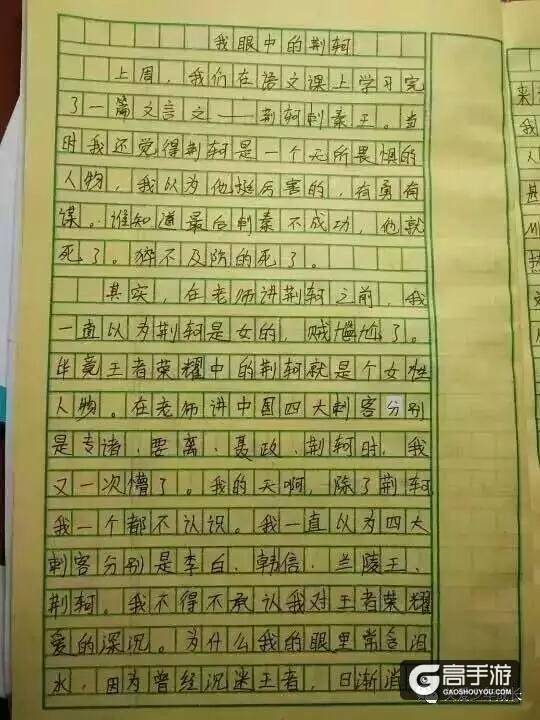 我眼中的荆轲
上周，我们在语文课上学习完
了一篇文言文——荆轲刺秦王。当
时我还觉得荆轲是一个无所畏惧的
人物，我认为他挺厉害的，有勇有
谋。谁知道最后刺秦不成功，他就
死了。猝不及防的死了。
其实，在老师讲荆轲之前，我
一直以为荆轲是女的，贼尴尬了。
毕竟王者荣耀中的荆轲就是个女性
人物。在老师讲中国四大刺客分别
是专诸、要离、聂政、荆轲时，我
又一次懵了。我的天啊，除了荆轲
我一个都不认识。我一直以为四大
刺客分别是李白、韩信、兰陵王、
荆轲。我不得不承认我对王者荣耀
爱的深沉。为什么我的眼里常含泪
水，因为曾经沉迷王者，日渐消
来
我
人
甚
高手游
GAOSHOUYOU.COM